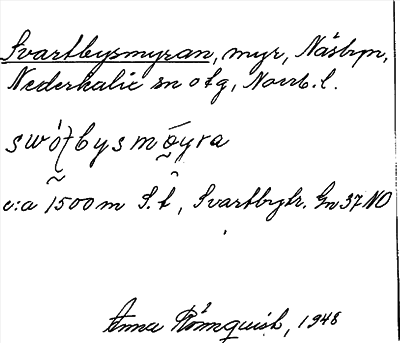 Svartbysmyran, myr, Näsbyn,
Nederkalix sn o tg, Norrb. l.
swót̯bysmǿyra
c:a 1500 m S. t, Svartbytr. Gn 37 NO
Anna Rönnquist, 1948